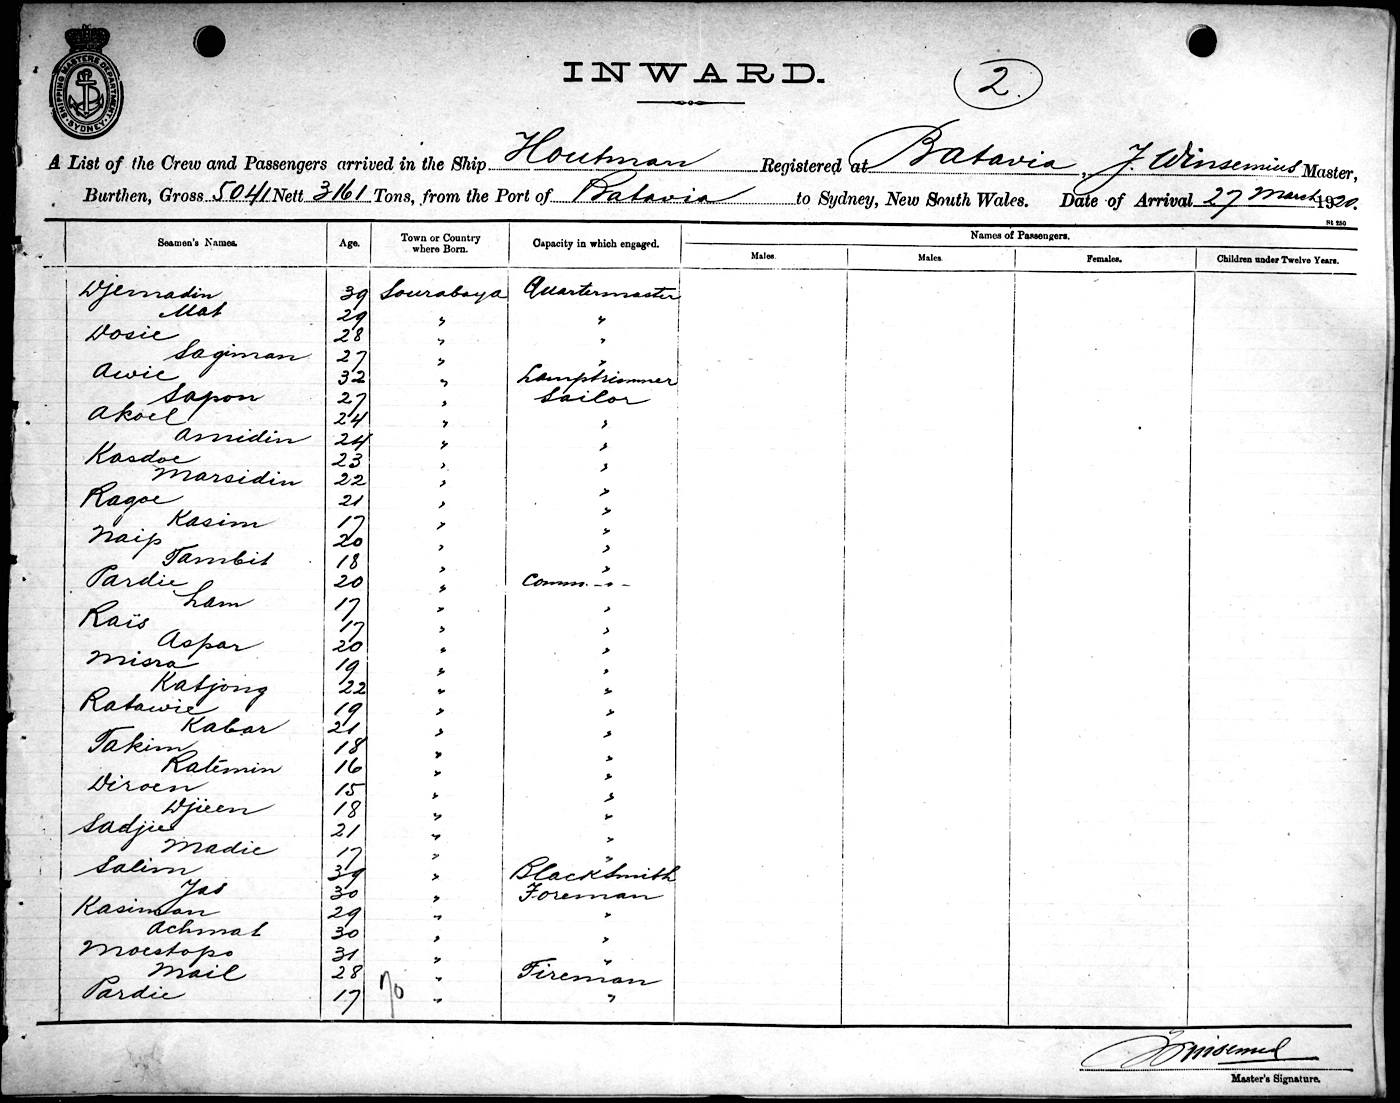 SHIPPING MASTERS DEPARTMENT SYDNEY
INWARD.
2.
A List of the Crew and Passengers arrived in the Ship Houtman Registered at Batavia, J. Winsemius Master,
Burthen, Gross 5041 Nett 3161 Tons, from the Port of Batavia to Sydney, New South Wales. Date of Arrival 27 March 1920.
St 250
Seamen's Names. Age. Town or Country where Born. Capacity in which engaged. Names of Passengers.
Males. Males. Females. Children under Twelve Years.
Djemadin 39 Sourabaya Quartermaster
Mat 29 " "
Dosie 28 " "
Sagiman 27 " "
Awie 32 " Lamptrimmer
Sapon 27 " Sailor
Akoel 24 " "
Amidin 24 " "
Kasdoe 23 " "
Marsidin 22 " "
Ragoe 21 " "
Kasim 17 " "
Naip 20 " "
Tambit 18 " "
Pardie 20 " Comm. - " -
Lam 17 " "
Raïs 17 " "
Aspar 20 " "
Misra 19 " "
Katjong 22 " "
Ratawie 19 " "
Kabar 21 " "
Takim 18 " "
Ratemin 16 " "
Diroen 15 " "
Djieen 18 " "
Sadjie 21 " "
Madie 17 " "
Salim 39 " Blacksmith
Jas 30 " Foreman
Kasiman 29 " "
Achmat 30 " "
Moestopo 31 " "
Mail 28 " Fireman
Pardie 17 " "
Winsemius
Master's Signature.